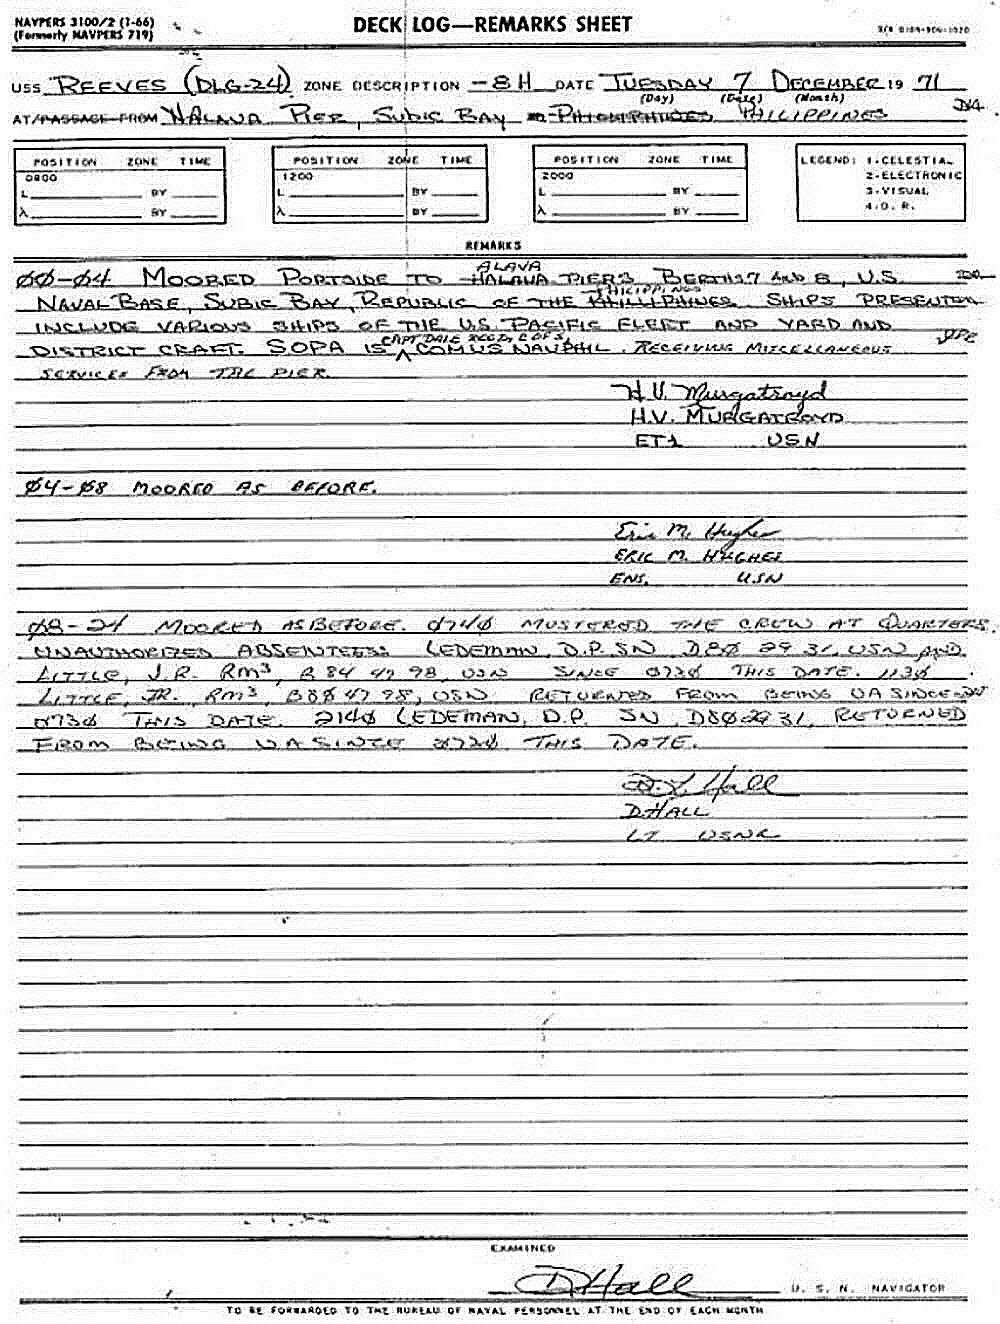 NAVPERS 3100/2 (1-66)
(Formerly NAVPERS 719)
DECK LOG—REMARKS SHEET
USS REEVES (DLG-24) ZONE DESCRIPTION -8H DATE TUESDAY 7 DECEMBER 19 71
(Day) (Date) (Month)
AT/PASSAGE FROM HALAVA PIER, SUBIC BAY PHILIPPINES
POSITION ZONE TIME
0800
L BY
λ BY
POSITION ZONE TIME
1200
L BY
λ BY
POSITION ZONE TIME
2000
L BY
λ BY
LEGEND: 1-CELESTIAL
2-ELECTRONIC
3-VISUAL
4-D. R.
REMARKS
ALAVA
00-04 MOORED PORTSIDE TO HALAVA PIER, BERTHS 7 AND 8, U.S.
PHILIPPINES
NAVAL BASE, SUBIC BAY, REPUBLIC OF THE PHILLIPHINES. SHIPS PRESENT
INCLUDE VARIOUS SHIPS OF THE U.S. PACIFIC FLEET AND YARD AND
CAPT DALE C OF S,
DISTRICT CRAFT. SOPA IS COMUSNAVPHIL. RECEIVING MISCELLANEOUS
SERVICES FROM THE PIER.
H.V. Murgatroyd
H.V. MURGATROYD
ET1 USN
04-08 MOORED AS BEFORE.
Eric M. Hughes
ERIC M. HUGHES
ENS. USN
08-24 MOORED AS BEFORE. 0740 MUSTERED THE CREW AT QUARTERS.
UNAUTHORIZED ABSENTEES: LEDEMAN, D.P. SN D80 29 31, USN AND
LITTLE, J.R. RM3, B 84 47 98, USN SINCE 0730 THIS DATE. 1130
LITTLE, JR. RM3, B88 47 98, USN RETURNED FROM BEING UA SINCE
0730 THIS DATE. 2140 LEDEMAN, D.P. SN D80 29 31, RETURNED
FROM BEING UA SINCE 0720 THIS DATE.
D. L. Hall
D. HALL
LT USNR
EXAMINED
D Hall U. S. N. NAVIGATOR
TO BE FORWARDED TO THE BUREAU OF NAVAL PERSONNEL AT THE END OF EACH MONTH